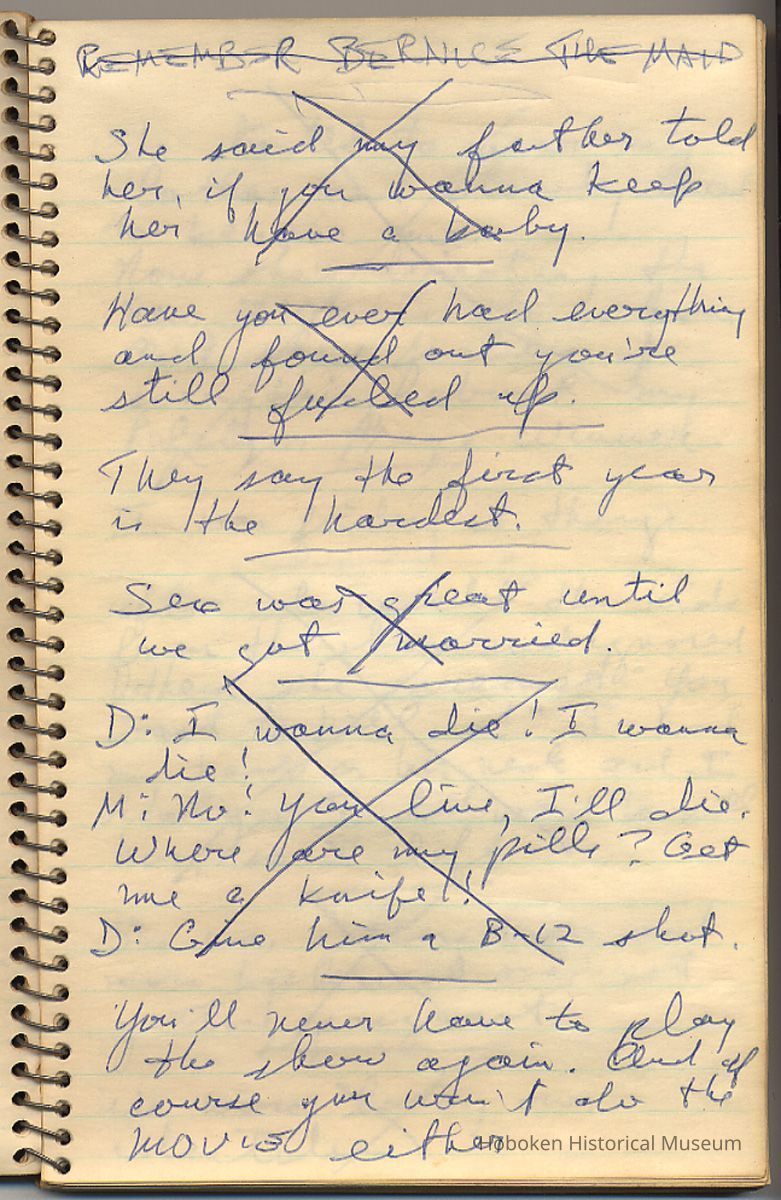 REMEMBER BERNICE THE MAID
She said my father told
her, if you wanna keep
her have a baby.
Have you ever had everything
and found out you're
still fucked up.
They say the first year
is the hardest.
Sex was great until
we got married.
D: I wanna die! I wanna
die!
M: No! You live, I'll die.
Where are my pills? Get
me a knife!
D: Give him a B-12 shot.
You'll never have to play
the show again. And of
course you won't do the
MOVIE either
Hoboken Historical Museum